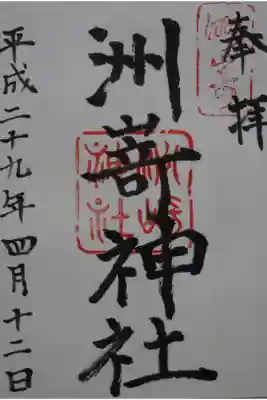 奉拝
洲嵜神社
平成二十九年四月十二日